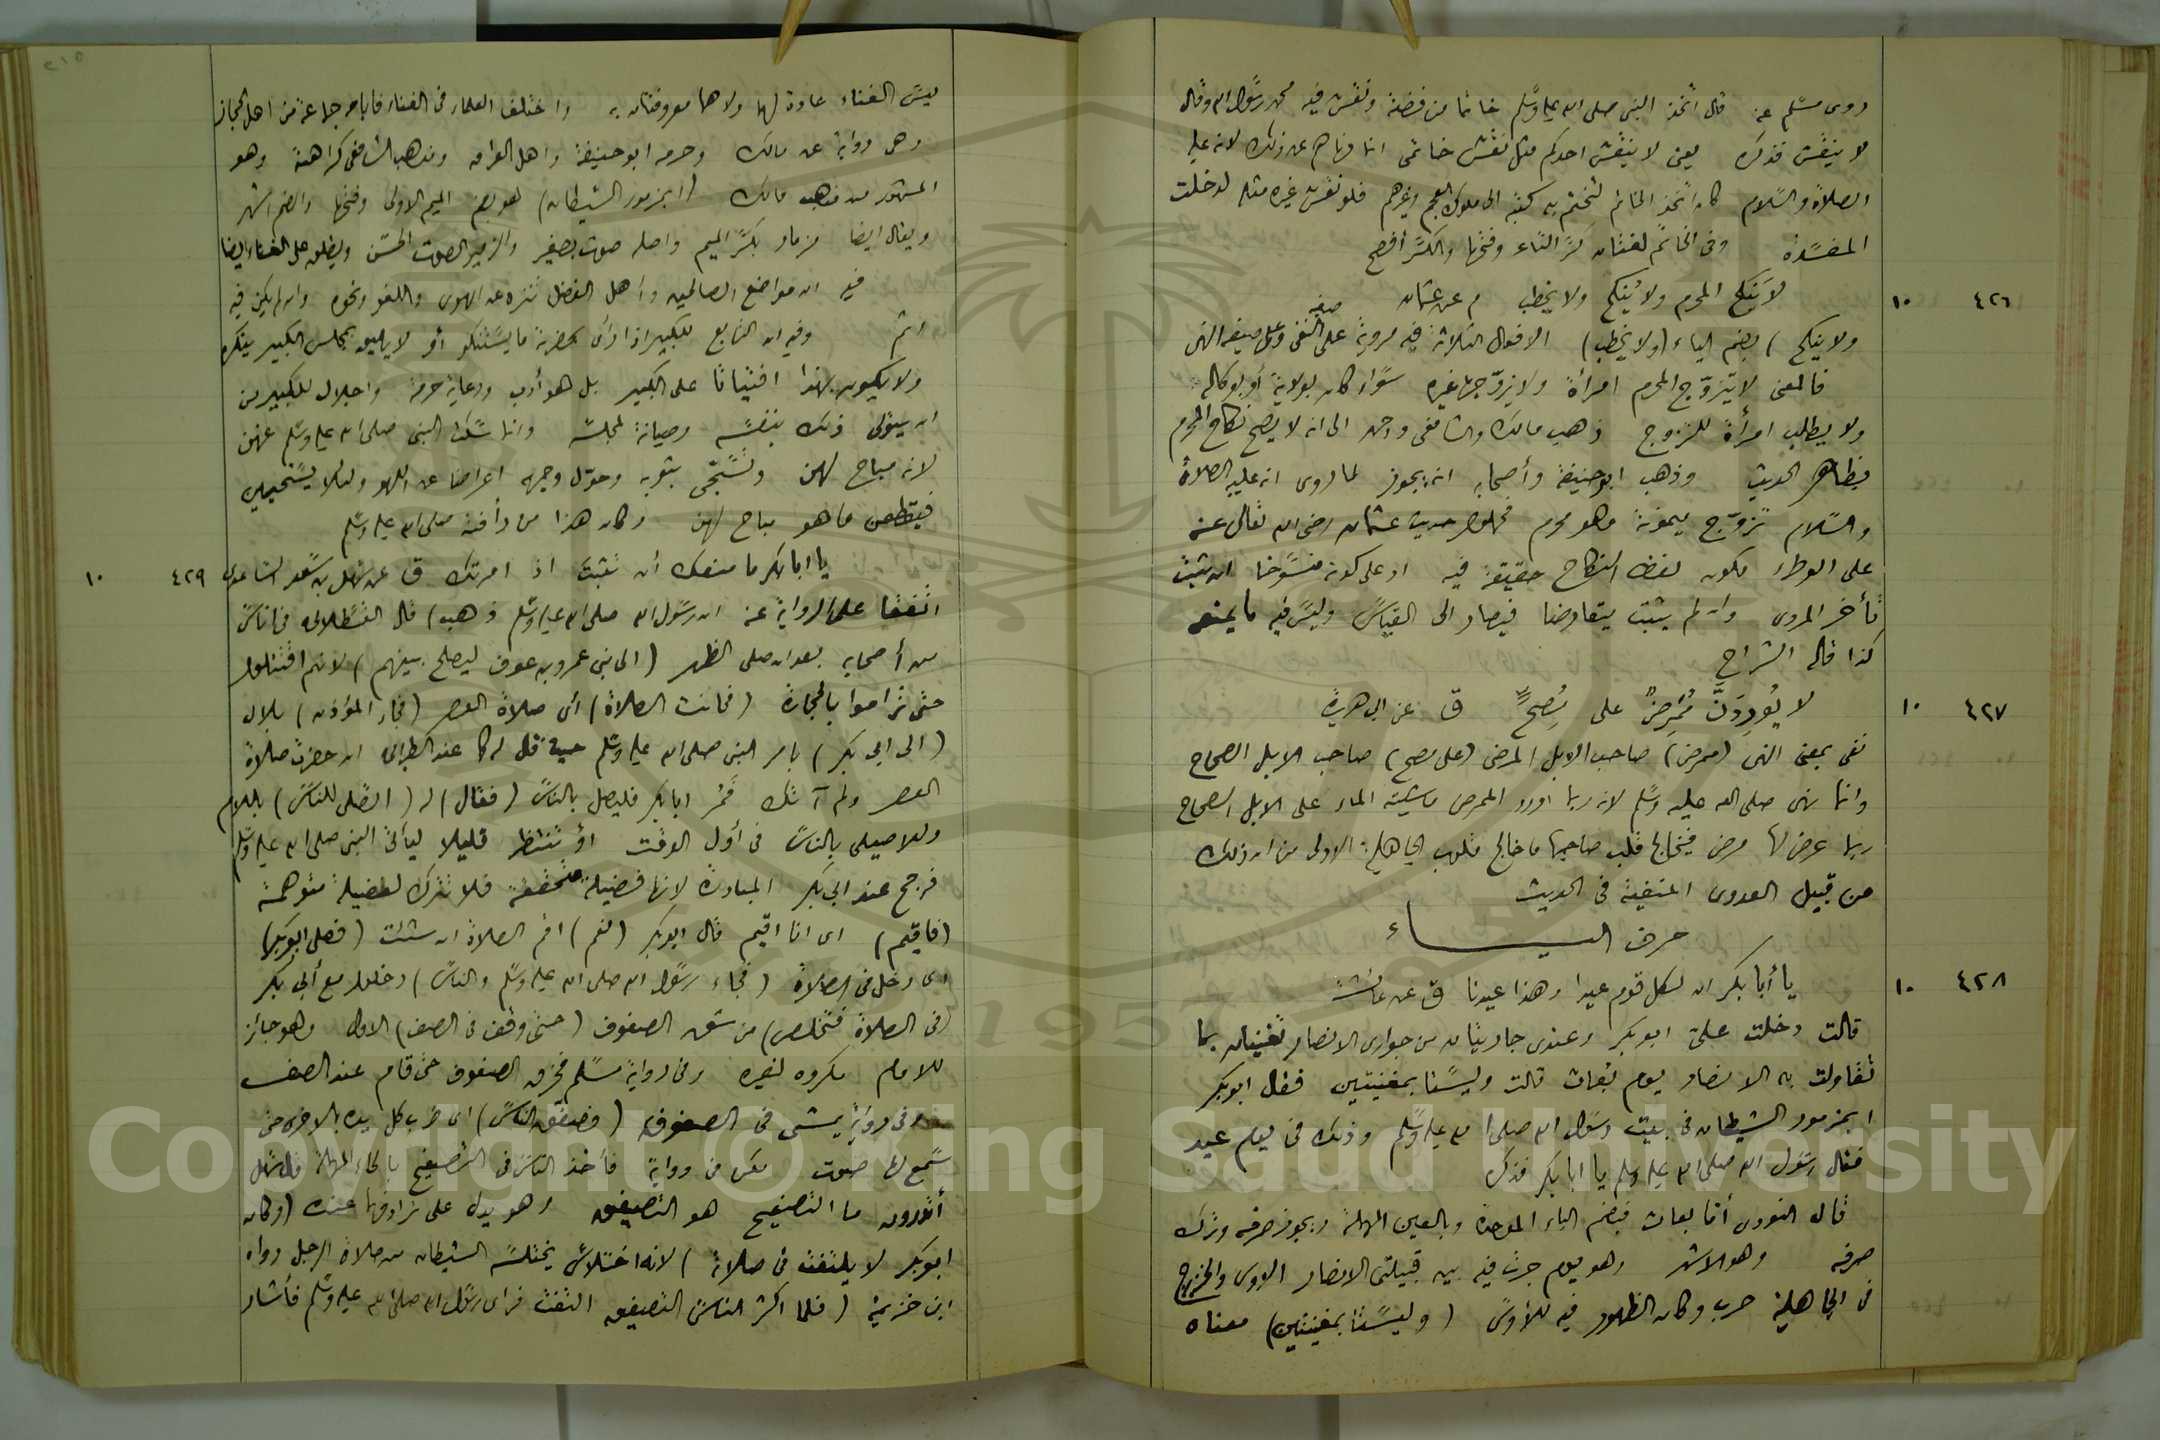 روى مسلم عنه قال اتخذ النبي صلى الله عليه وسلم خاتما من فضة ونقش فيه محمد رسول الله وقال
لا ينقش فذكره يعني لا ينقش احدكم مثل نقش خاتمي انما نهاهم عن ذلك لانه عليه
الصلاة والسلام كان اتخذ الخاتم لتختم به كتبه الى ملوك العجم وغيرهم فلو نقش غيره مثله لدخلت
المفسدة وفى الخاتم لغتان كسر التاء وفتحها والكسر أفصح
٤٢٦ ١٠ لا ينكح المحرم ولا يُنكح ولا يخطب م عن عثمان
ولا ينكح ) بضم الياء (ولا يخطب) الافعال الثلاثة فيه مروية على صيغة النفى وعلى صيغة النهى
فالمعنى لا يتزوج المحرم امرأة ولا يزوجها غيره سواء كان بولاية أو بوكالة
ولا يطلب امرأة للتزوج ذهب مالك والشافعى واحمد الى انه لا يصح نكاح المحرم
بظاهر الحديث وذهب ابو حنيفة وأصحابه انه يجوز لما روى انه عليه الصلاة
والسلام تزوج ميمونة وهو محرم فحملوا حديث عثمان رضى الله تعالى عنه
على الوطء لكون لفظ النكاح حقيقة فيه او على كونه منسوخا ان ثبت
تأخر المروى وان لم يثبت يتعارضا فيصار الى القياس وليس فيه ما يمنعه
كذا قاله الشراح
٤٢٧ ١٠ لا يُورِدَنَّ مُمْرِضٌ على مُصِحٍّ ق عن ابى هريرة
نفى بمعنى النهى (ممرض) صاحب الابل المرضى (على مصح) صاحب الابل الصحاح
وانما نهى صلى الله عليه وسلم لانه ربما اورد الممرض ماشيته الماء على الابل الصحاح
ربما عرض لها مرض فيخالج قلب صاحبها ما خالج قلوب الجاهلية الاولى من ان ذلك
من قبيل العدوى المنفية في الحديث
حرف اليـــاء
٤٢٨ ١٠ يا أبا بكر ان لكل قوم عيدا وهذا عيدنا ق عن عائشة
قالت دخلت علىّ ابو بكر وعندى جاريتان من جوارى الانصار تغنيان بما
تقاولت به الانصار يوم بُعاث قالت وليستا بمغنيتين فقال ابو بكر
ابمزمور الشيطان فى بيت رسول الله صلى الله عليه وسلم وذلك فى يوم عيد
فقال رسول الله صلى الله عليه وسلم يا ابا بكر فذكره
قال النووى أما بعاث فبضم الباء الموحدة وبالعين المهملة ويجوز صرفه وترك
صرفه وهو الاشهر وهو يوم جرت فيه بين قبيلتى الانصار الاوس والخزرج
فى الجاهلية حرب وكان الظهور فيه للأوس (وليستا بمغنيتين) معناه
ليس الغناء عادة لهما ولا هما معروفتان به واختلف العلماء فى الغناء فاباحه جماعة من اهل الحجاز
وهى رواية عن مالك وحرمه ابو حنيفة واهل العراق ومذهب الشافعى كراهته وهو
المشهور من مذهب مالك (ابمزمور الشيطان) هو بضم الميم الاولى وفتحها والضم اشهر
ويقال ايضا مزمار بكسر الميم واصله صوت بصفير والزمير الصوت الحسن ويطلق على الغناء ايضا
فيه ان مواضع الصالحين وأهل الفضل تنزه عن الهوى واللغو ونحوه وان لم يكن فيه
اثم وفيه ان التابع للكبير اذا رأى بحضرته ما يستنكر أو لا يليق بمجلس الكبير ينكره
ولا يكون بهذا افتياتا على الكبير بل هو أدب ورعاية حرمة واجلال للكبير من
ان يتولى ذلك بنفسه وصيانة لمجلسه وانما سكت النبى صلى الله عليه وسلم عنهن
لانه مباح لهن وتسجّى بثوبه وحوّل وجهه اعراضا عن اللهو ولئلا يستحيين
فيقطعن ما هو مباح لهن وكان هذا من رأفته صلى الله عليه وسلم
٤٢٩ ١٠ يا ابا بكر ما منعك أن تثبت اذ امرتك ق عن سهل بن سعد الساعدى
اتفقا على الرواية عنه ان رسول الله صلى الله عليه وسلم ذهب) قال القسطلانى فى اناس
من أصحابه بعد ان صلى الظهر (الى بنى عمرو بن عوف ليصلح بينهم) لانهم اقتتلوا
حتى تراموا بالحجارة (فحانت الصلاة) أى صلاة العصر (فجاء المؤذن) بلال
(الى ابى بكر) بامر النبى صلى الله عليه وسلم حيث قال له كما عند الطبرانى ان حضرت صلاة
العصر ولم آتك فمُرْ ابا بكر فليصل بالناس (فقال) له (اتصلى للناس) باللام
وللاصيلى بالناس فى أول الوقت أو تنتظر قليلا ليأتى النبى صلى الله عليه وسلم
فرجح عند ابى بكر المبادرة لانها فضيلة متحققة فلا تترك لفضيلة متوهمة
(فاقيم) اى انا اقيم قال ابو بكر (نعم) اقم الصلاة ان شئت (فصلى ابو بكر)
اى دخل فى الصلاة (فجاء رسول الله صلى الله عليه وسلم والناس) دخلوا مع أبى بكر
(فى الصلاة فتخلص) من شق الصفوف (حتى وقف فى الصف) الاول وهو جائز
للامام مكروه لغيره وفى رواية مسلم فخرق الصفوف حتى قام عند الصف
وفى رواية يمشى فى الصفوف (فصفق الناس) اى ضرب كل يده بالاخرى حتى
سمع لها صوت لكن فى رواية فأخذ الناس فى التصفيح بالحاء المهملة قال سهل
أتدرون ما التصفيح هو التصفيق وهو يدل على ترادفهما عنده (وكان
ابو بكر لا يلتفت فى صلاته) لانه اختلاس يختلسه الشيطان من صلاة الرجل رواه
ابن خزيمة (فلما اكثر الناس التصفيق التفت فراى رسول الله صلى الله عليه وسلم فأشار
Copyright © King Saud University
1957